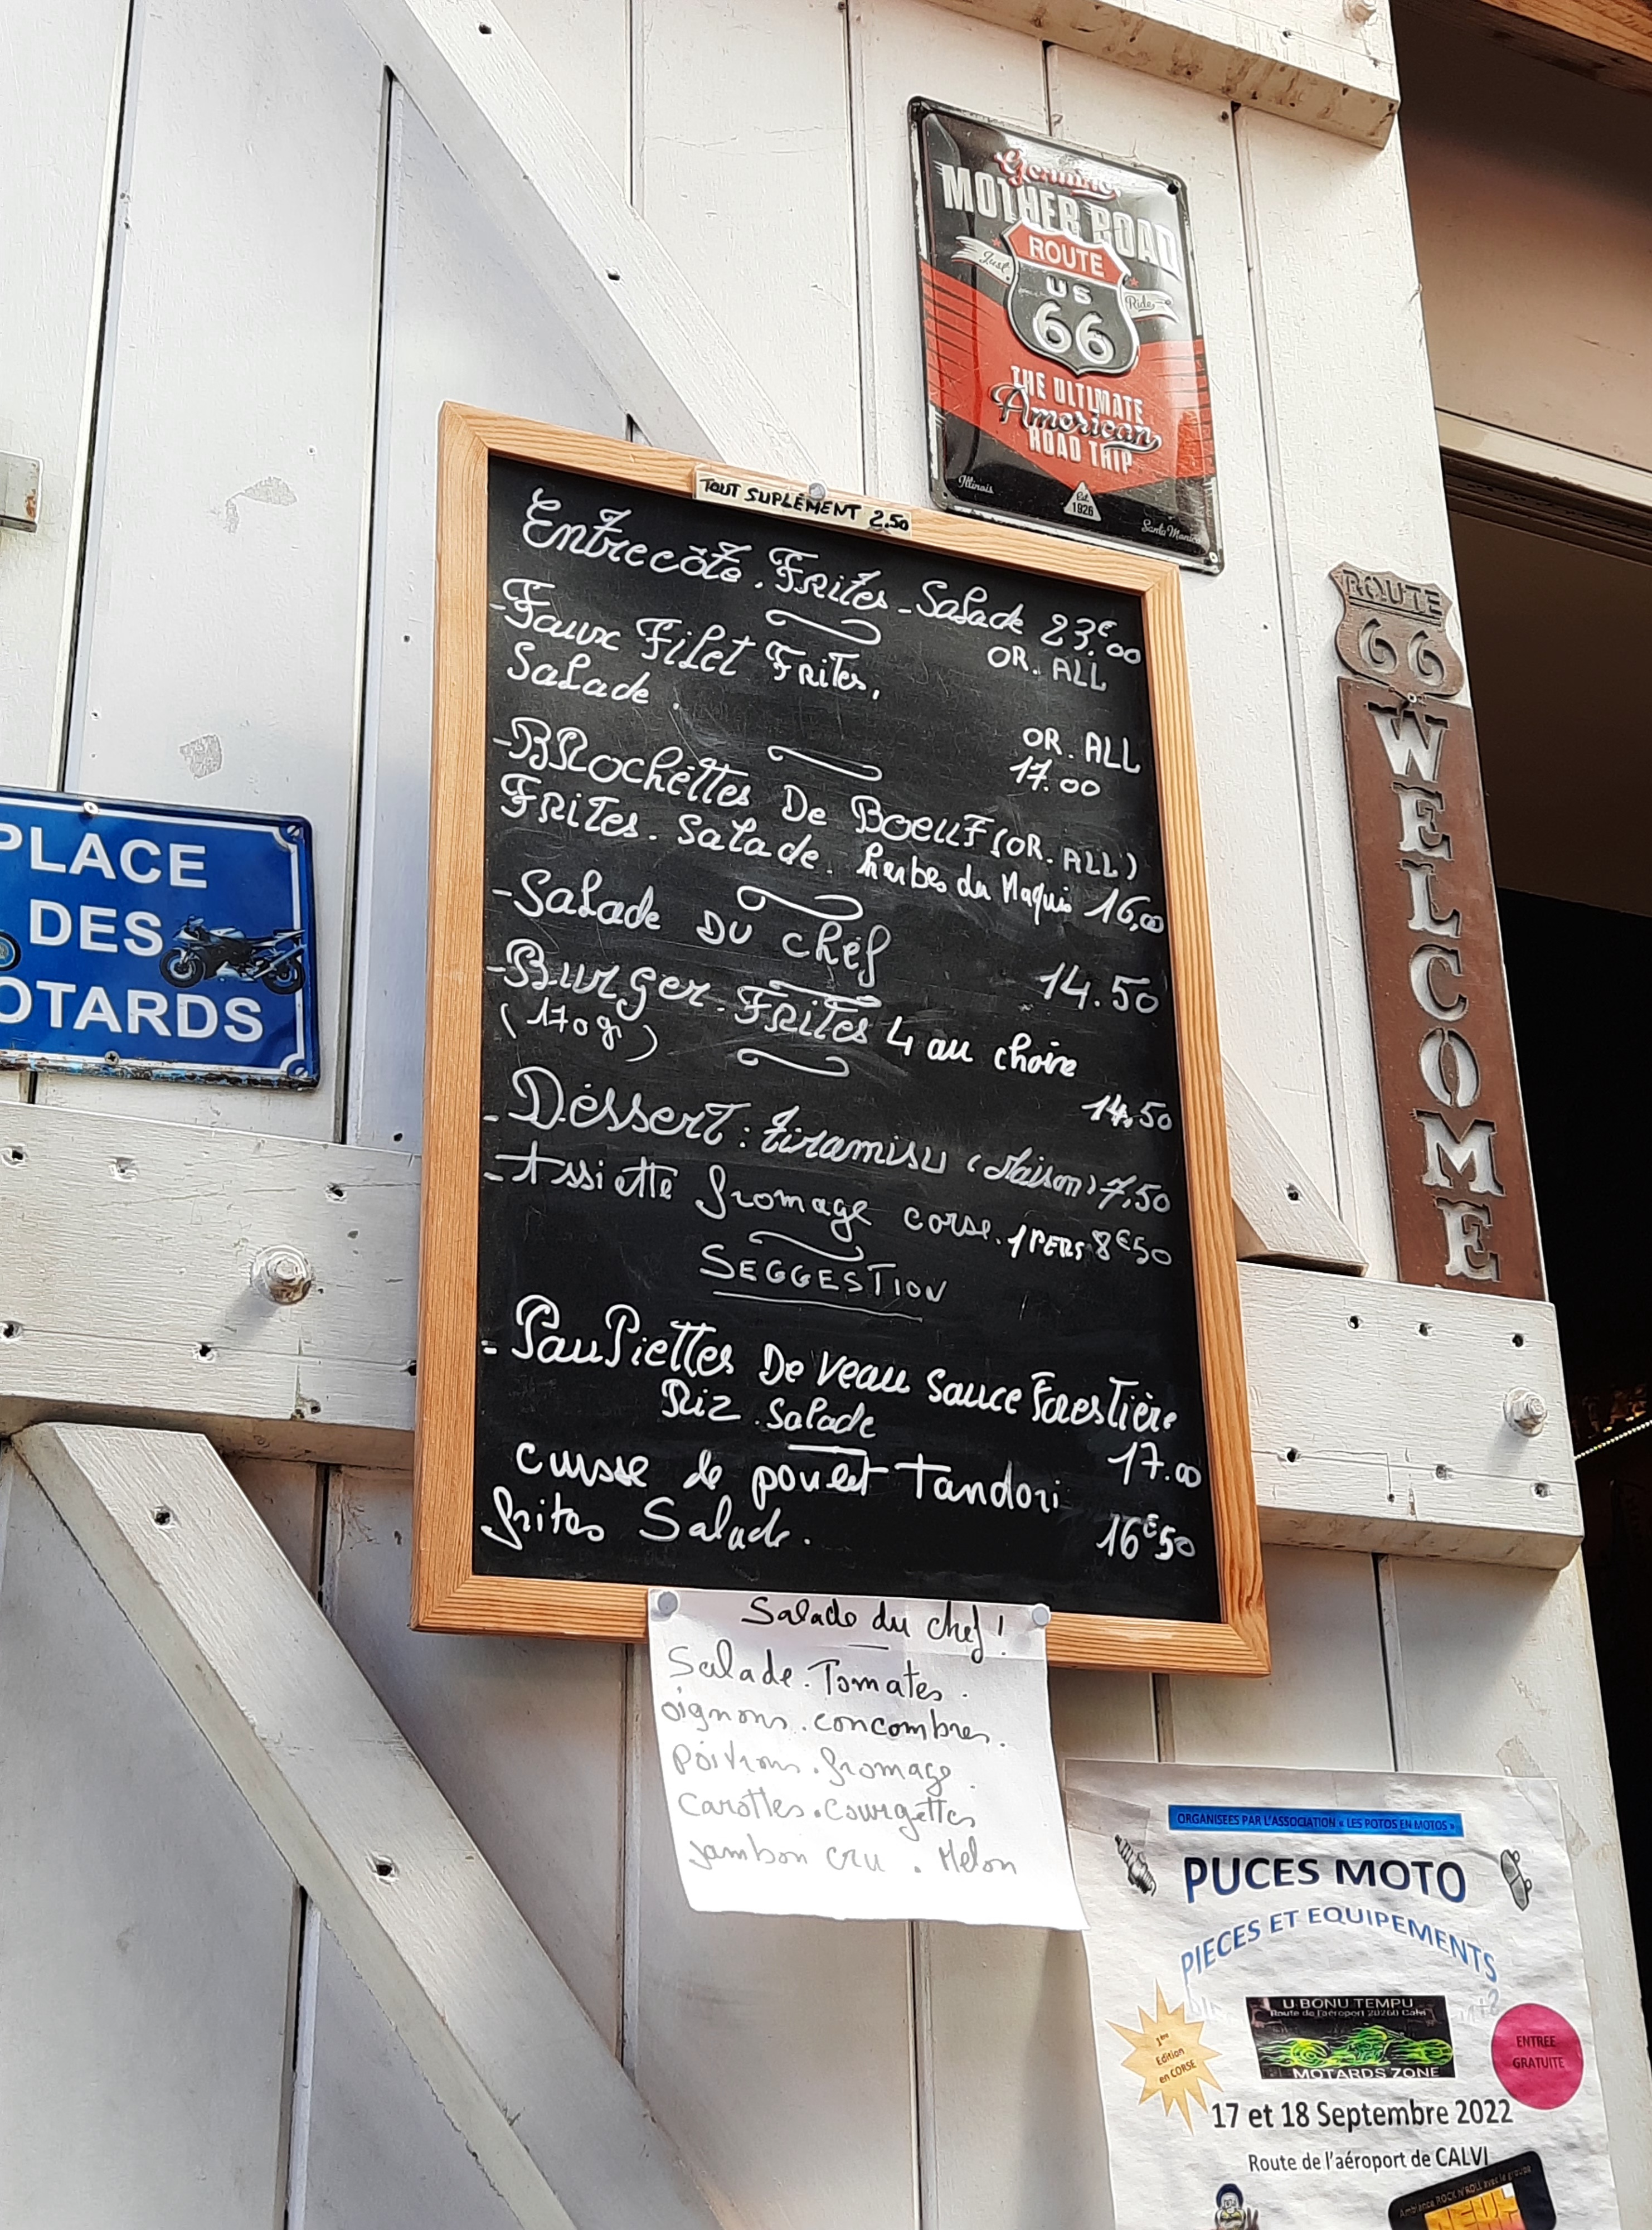 Genuine
MOTHER ROAD
ROUTE
Just Ride
US
66
THE ULTIMATE
American
ROAD TRIP
Illinois
Est.
1926
Santa Monica
TOUT SUPLÉMENT 2.50
Entrecôte. Frites - Salade 23€.00
OR. ALL
- Faux Filet Frites.
Salade.
OR. ALL
17.00
- Brochettes De Boeuf (OR. ALL)
Frites. Salade. herbes du Maquis 16,00
- Salade DU chef
14.50
- Burger. Frites 4 au choire
(170g)
14.50
- Déssert: tiramisu (Maison) 7,50
- Assiette fromage corse. 1 PERS 8€50
SEGGESTION
= PauPiettes De Veau Sauce Forestière
Riz. Salade
17.00
cuisse de poulet Tandori
frites Salade.
16€50
Salade du chef!
Salade. Tomates.
oignons. concombres.
poivrons. fromage.
carottes. courgettes
jambon cru. Melon
PLACE
DES
OTARDS
ROUTE
66
WELCOME
ORGANISEES PAR L'ASSOCIATION « LES POTOS EN MOTOS »
PUCES MOTO
PIECES ET EQUIPEMENTS
U BONU TEMPU
Route de l'aéroport 20260 Calvi
MOTARDS ZONE
1ère
Edition
en CORSE
ENTREE
GRATUITE
17 et 18 Septembre 2022
Route de l'aéroport de CALVI
Ambiance ROCK N'ROLL avec le groupe